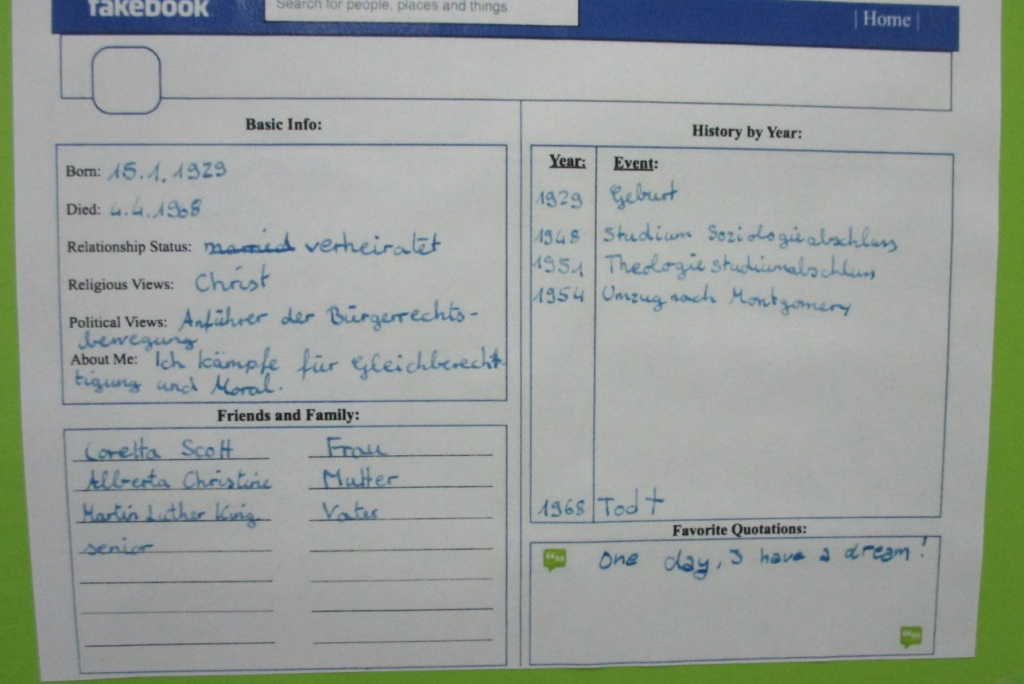 fakebook
Search for people, places and things
| Home |
Basic Info:
Born: 15.1.1929
Died: 4.4.1968
Relationship Status: married verheiratet
Religious Views: Christ
Political Views: Anführer der Bürgerrechts-
bewegung
About Me: Ich kämpfe für Gleichberecht
tigung und Moral.
Friends and Family:
Coretta Scott Frau
Alberta Christine Mutter
Martin Luther King Vater
senior
History by Year:
Year: Event:
1929 Geburt
1948 Studium Soziologieabschluss
1951 Theologiestudiumabschluss
1954 Umzug nach Montgomery
1968 Tod †
Favorite Quotations:
One day, I have a dream!